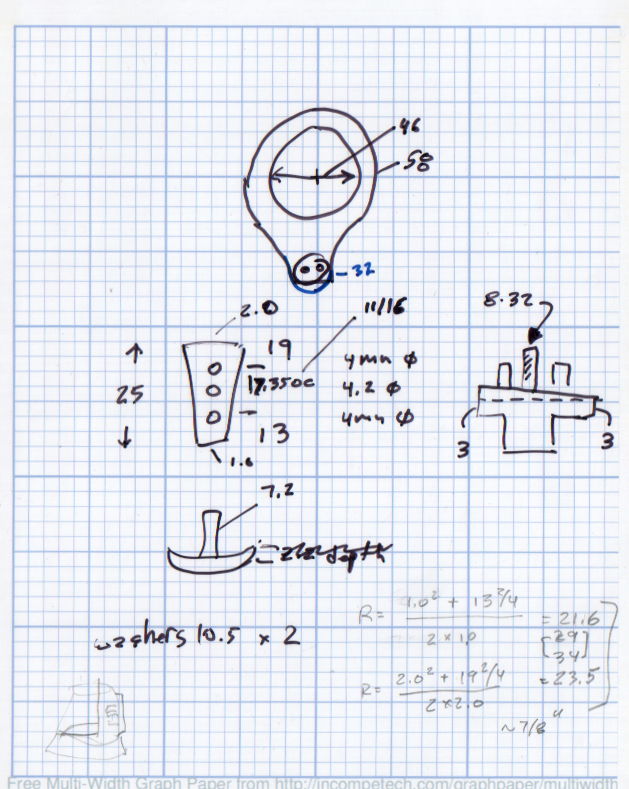 46
58
32
2.0
11/16
8.32
19
4mm ϕ
25
17.350c
4.2 ϕ
4mm ϕ
13
3
3
1.6
7.2
washers 10.5 x 2
R = 1.0² + 13²/4
2 x 1.0
= 21.6
[29
34]
R = 2.0² + 19²/4
2 x 2.0
= 23.5
~7/8"
Free Multi-Width Graph Paper from http://incompetech.com/graphpaper/multiwidth